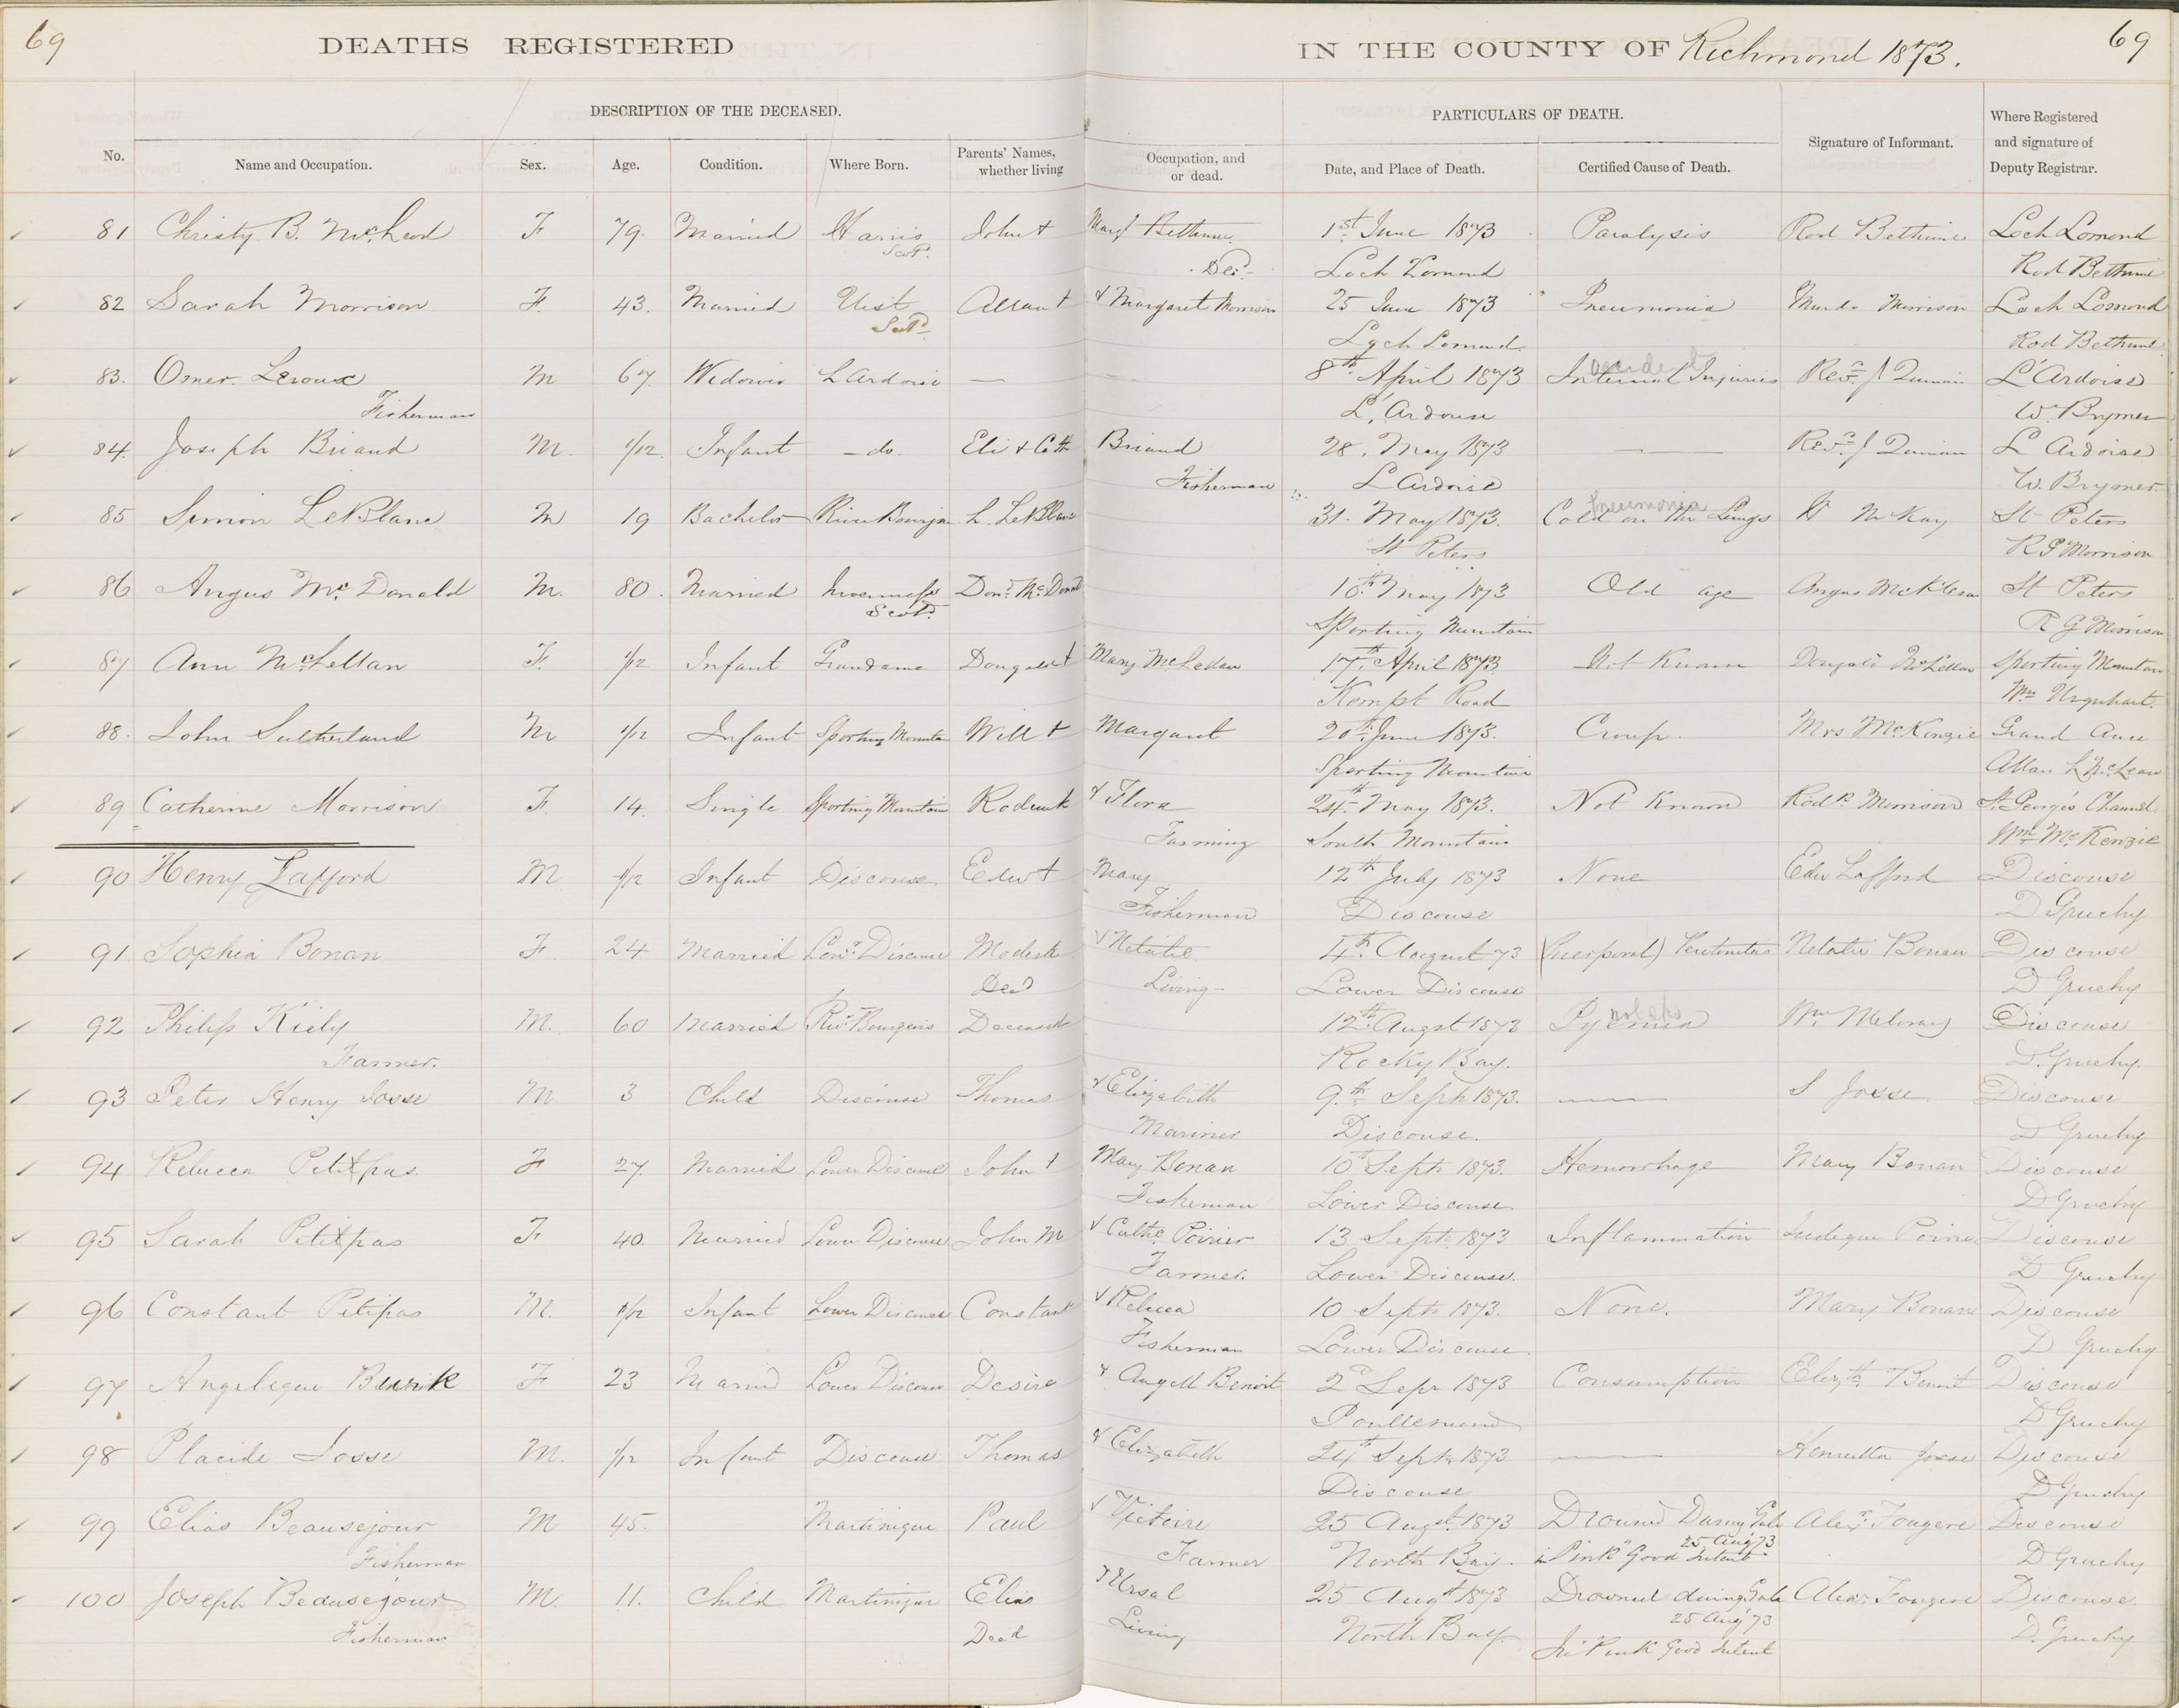 69
DEATHS REGISTERED
IN THE COUNTY OF Richmond 1873.
69
DESCRIPTION OF THE DECEASED.
PARTICULARS OF DEATH.
No. Name and Occupation. Sex. Age. Condition. Where Born. Parents' Names, whether living Occupation, and or dead. Date, and Place of Death. Certified Cause of Death. Signature of Informant. Where Registered and signature of Deputy Registrar.
81 Christy B. McLeod F 79 Married Harris John + Mary Bethune 1st June 1873 Paralysis Rod Bethune Loch Lomond
Scot. Dec. Loch Lomond Rod Bethune
82 Sarah Morrison F. 43. Married Uist Allan + & Margaret Morrison 25 June 1873 Pneumonia Murdo Morrison Loch Lomond
Scotd Loch Lomond. Rod Bethune
accident
83. Omer Leroux M 67 Widower L'Ardoise — 8th April 1873 Internal Injuries Revd J Quinan L'Ardoise
Fisherman L'Ardoise W. Brymer
84. Joseph Briand M. 1/12. Infant - do. Eli & Cath Briand 28. May 1873 — Revd J Quinan L Ardoise
Fisherman L Ardoise W. Brymer
Pneumonia
85 Simon LeBlanc M 19 Bachelor River Bourgeois L. LeBlanc 31. May 1873. Cold on the Lungs McKay St Peters
St Peters R G Morrison
86 Angus McDonald M. 80. Married Inverness Dond McDonald 10th May 1873 Old age Angus St Peters
Scotd Sporting Mountain R G Morrison
87 Ann McLellan F. 1/12 Infant Grandance Dougald + Mary McLellan 17th April 1873 Not Known Dougald McLellan Sporting Mountain
Kempt Road Wm Urquhart.
88. John Sutherland M 1/12 Infant Sporting Mountain Will + Margaret 20th June 1873. Croup. Mrs McKenzie Grand Ance
Sporting Mountain Allan L McLean
89 Catherine Morrison F. 14. Single Sporting Mountain Roderick & Flora 24th May 1873. Not Known Rodk Morrison St. George's Channel
Farming South Mountain Wm McKenzie
90 Henry Lafford M 1/12 Infant Discouse Edw + Mary 12th July 1873 None Edw Lafford Discouse
Fisherman Discouse D Gruchy
91 Sophia Bonan F. 24 Married Lowr Discouse Modeste & Natalie 4th August 73 (Puerperal) Peritonitis Natalie Bonan Discouse
Ded Living Lower Discouse D Gruchy
92 Philip Kiely M. 60 Married Rivr Bourgeois Deceased 12th Augst 1873 Pyemia Wm Discouse
Farmer. Rocky Bay. D. Gruchy.
93 Peter Henry Josse M 3 Child Discouse Thomas & Elizabeth 9th Sept 1873. — S Josse Discouse
Mariner Discouse. D Gruchy
94 Rebecca Petitpas. F 27. Married Lower Discouse John + Mary Bonan 10th Sept 1873. Hemorrhage Mary Bonan Discouse
Fisherman Lower Discouse D Gruchy
95 Sarah Petitpas F 40. Married Lower Discouse John M & Cathe Poirier 13 Sept 1873 Inflammation Poirier Discouse
Farmer. Lower Discouse. D Gruchy
96 Constant Petipas M. 1/12 Infant Lower Discouse Constant & Rebecca 10 Sept 1873. None. Mary Bonan Discouse
Fisherman Lower Discouse. D Gruchy
97 Angelique F 23 Married Lower Discouse Desire & Angell Benoit 2d Sepr 1873 Consumption Elizth Benoit Discouse
D Gruchy
98 Placide Josse M. 1/12 Infant Discouse Thomas & Elizabeth 24th Sept 1873 — Henrietta Josse Discouse
Discouse D Gruchy
99 Elias Beausejour M 45. Martinique Paul & Victoire 25 Augst. 1873 Drowned During Gale Alexr Fougere Discouse
25 Aug 73
Fisherman Farmer North Bay. in Pink "Good Intent" D Gruchy
100 Joseph Beausejour M. 11. Child Martinique Elias & Ursal 25 Augst 1873 Drowned during Gale Alexr Fougere Discouse
25 Aug 73
Fisherman Dead Living North Bay. In Pink Good Intent D. Gruchy